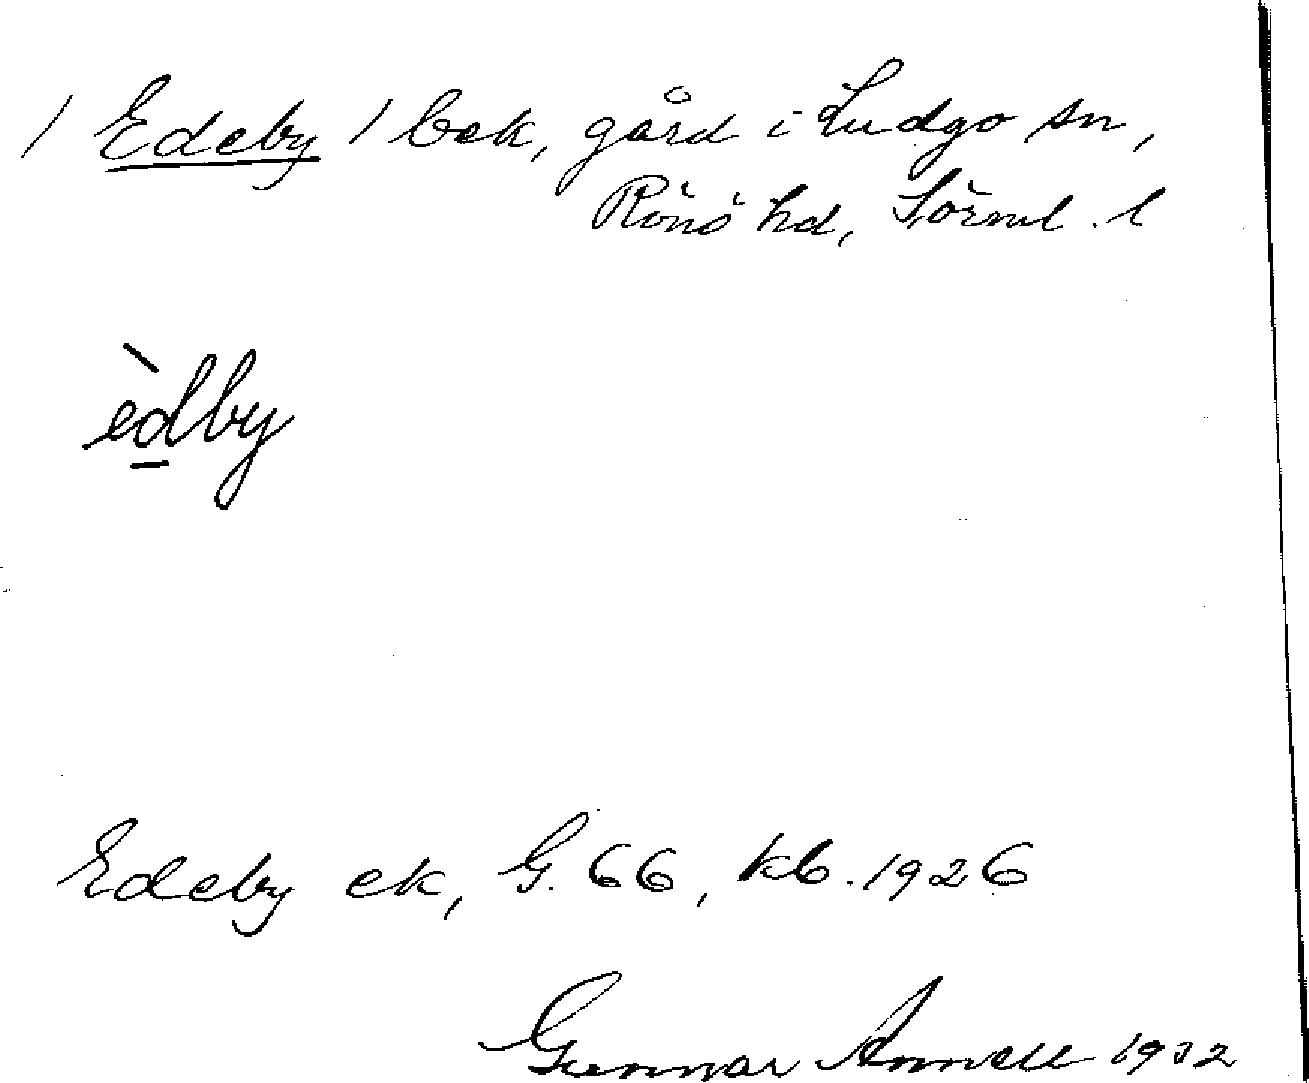 / Edeby / bek, gård i Ludgo sn,
Rönö hd, Sörml. l
èdby
Edeby ek, G. 66, kb. 1926
Gunnar Annell 1932